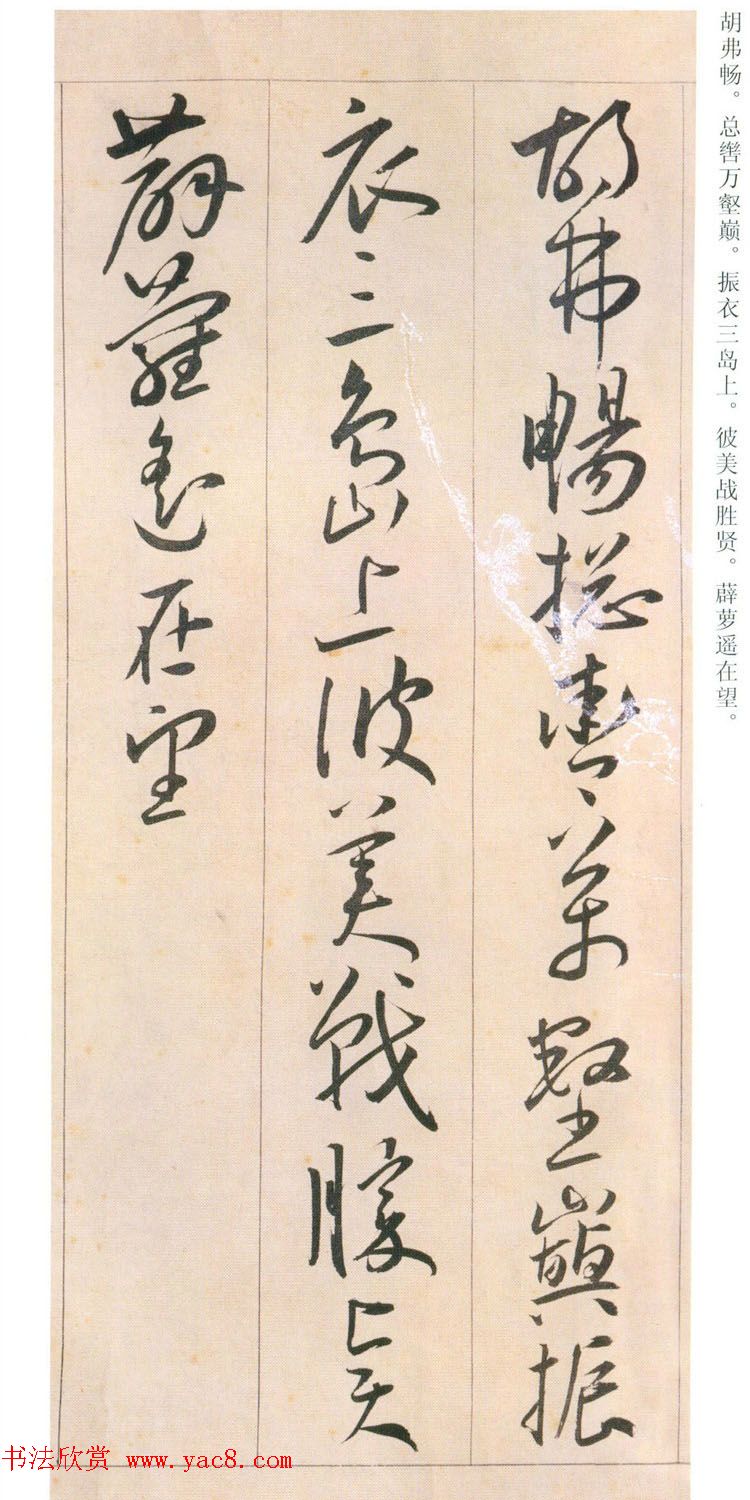 胡弗畅。总辔万壑巅。振衣三岛上。彼美战胜贤。薜萝遥在望。
胡弗暢揔轡萬壑巔振
衣三島上彼美戰勝賢
薜蘿遙在望
书法欣赏 www.yac8.com